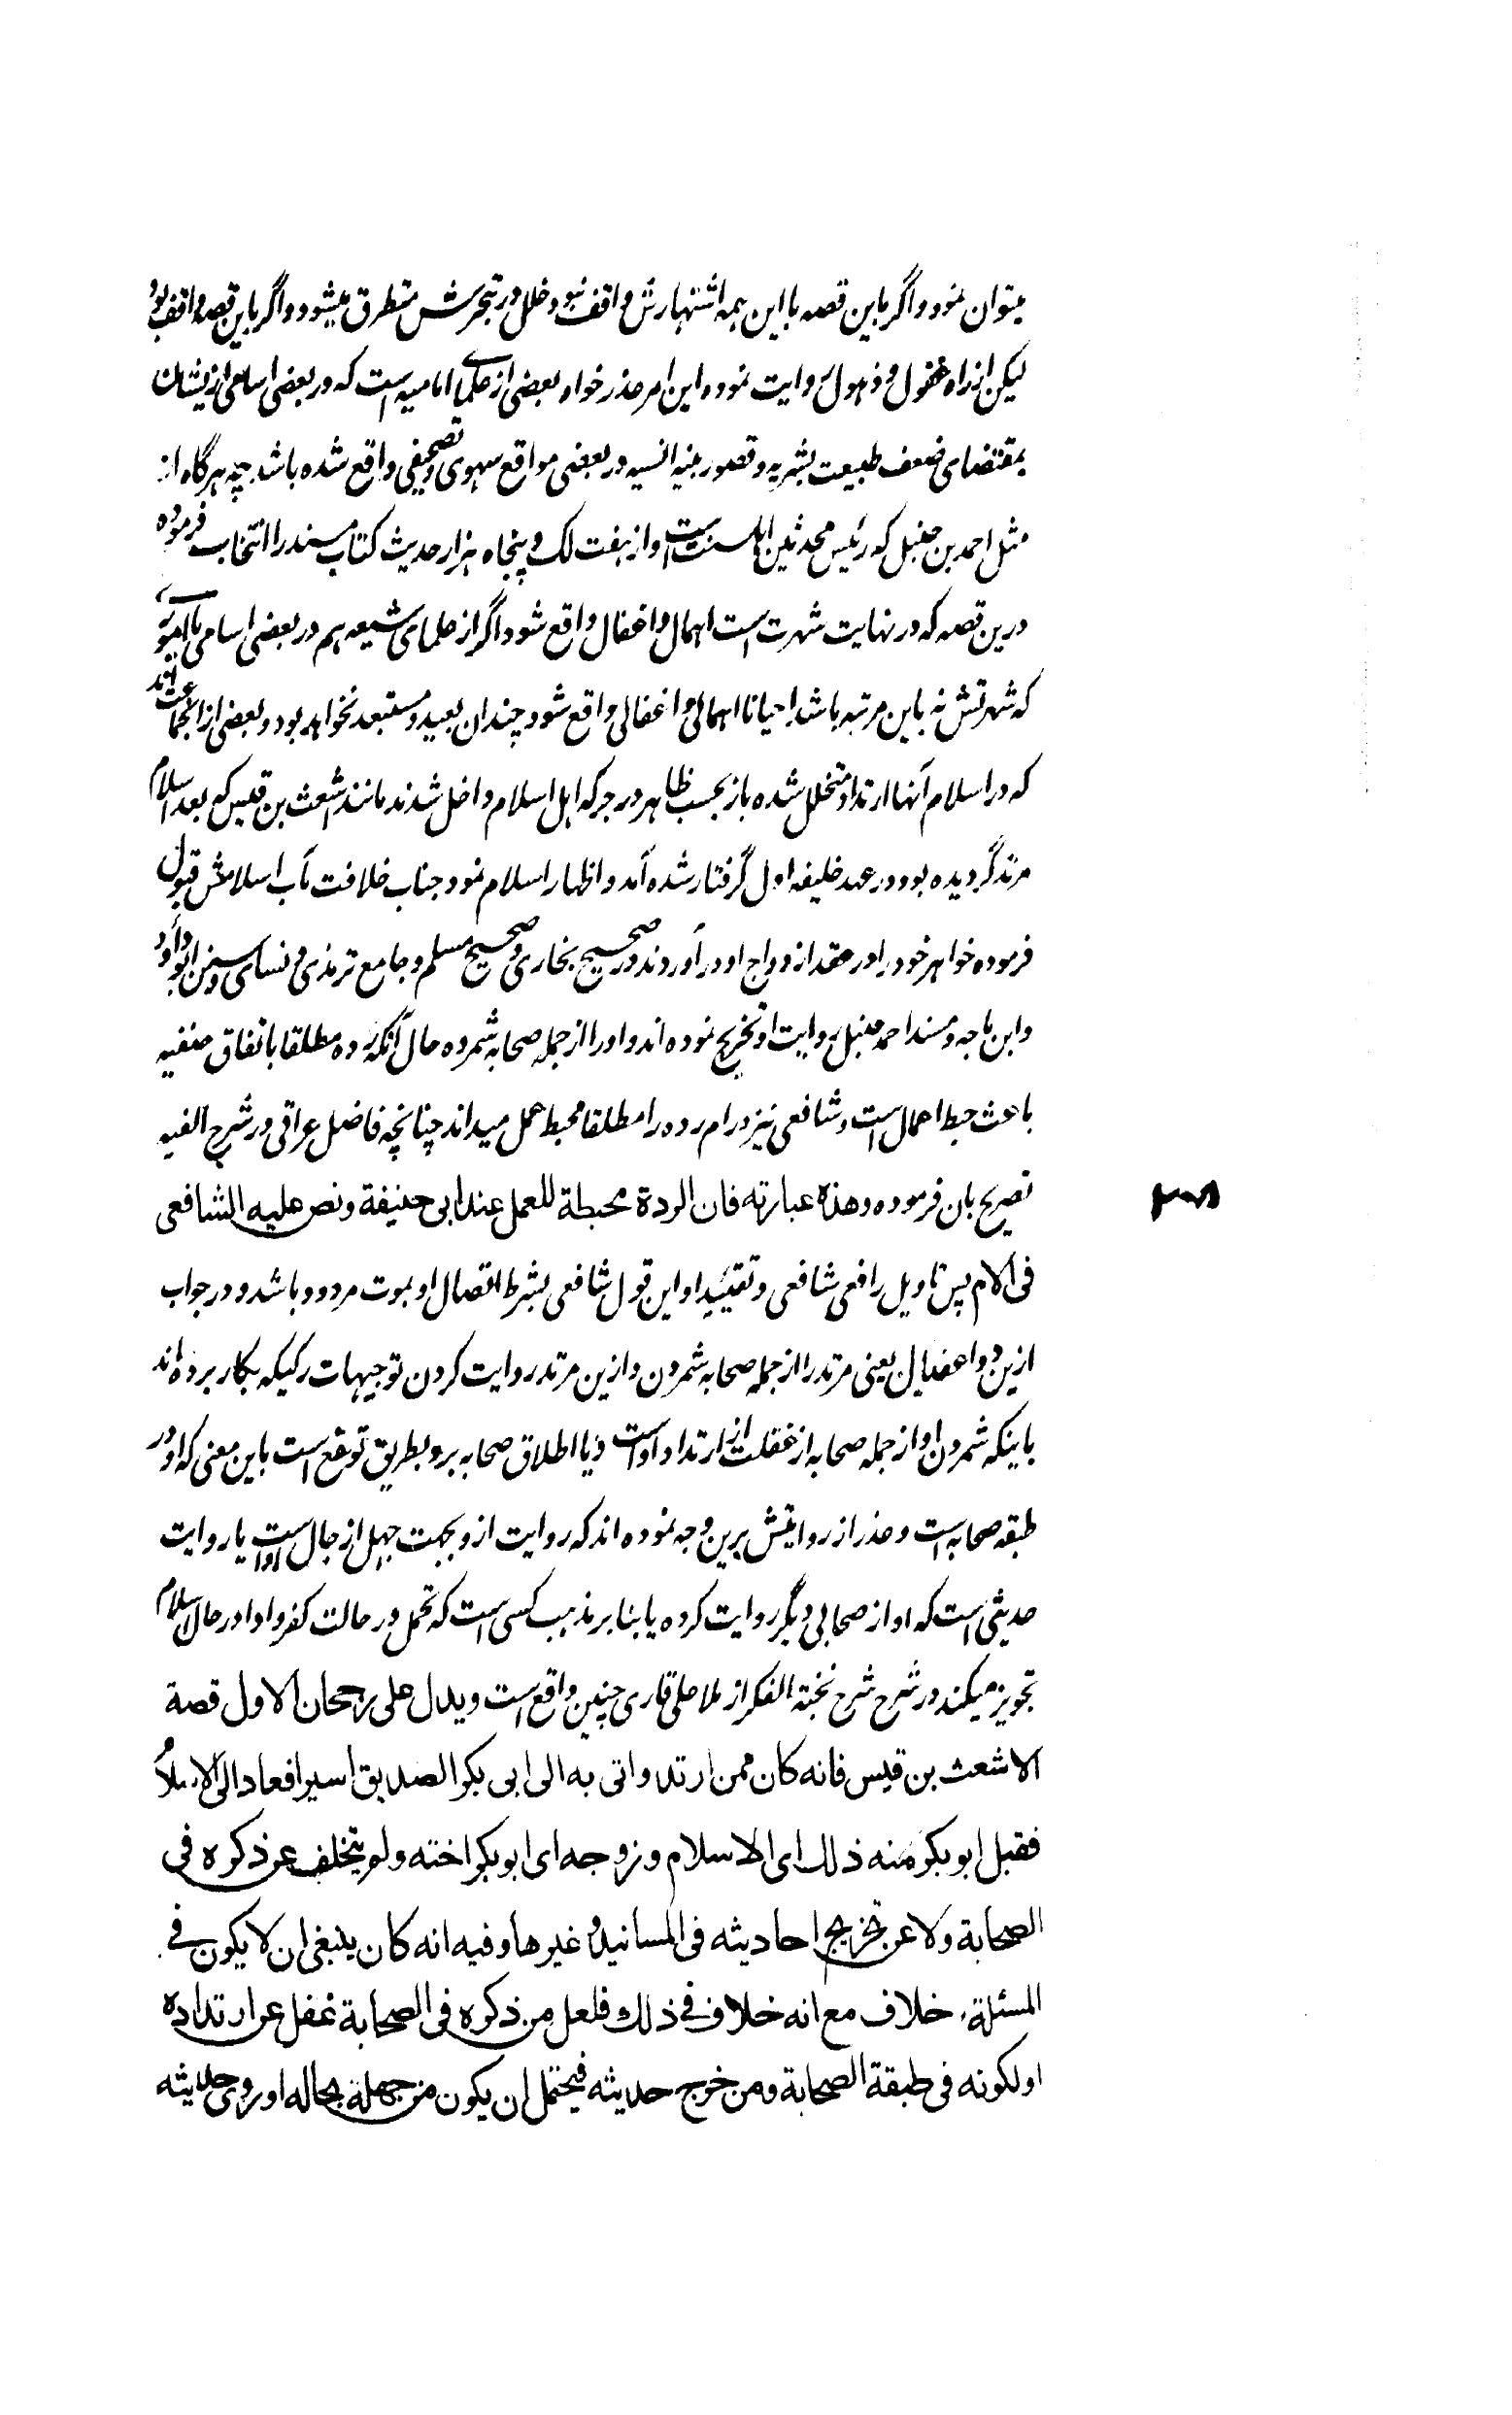 میتوان نمود و اگر باین قصه با این همه اشتهارش واقف نبود خلل در تبحرش متطرق میشود و اگر باین قصه واقف بود
لیکن از راه غفول و ذهول روایت نموده این امر عذر خواه بعضی از علمای امامیه است که در بعضی اسامی ازیشان
بمقتضای ضعف طبیعت بشریه و قصور بنیه انسیه در بعضی مواقع سهوی و تصحیفی واقع شده باشد چه هرگاه از
مثل احمد بن حنبل که رئیس محدثین اهلسنت است و از هفت لک و پنجاه هزار حدیث کتاب مسند را انتخاب فرموده
درین قصه که در نهایت شهرت است اهمال و اغفال واقع شود اگر از علمای شیعه هم در بعضی اسامی یا امور
که شهرتش نه باین مرتبه باشد احیانا اهمالی و اغفالی واقع شود چندان بعید و مستبعد نخواهد بود و بعضی ازانجماعت اند
که در اسلام آنها ارتداد متخلل شده باز بحسب ظاهر در جرکه اهل اسلام داخل شدند مانند اشعث بن قیس که بعد اسلام
مرتد گردیده بود و در عهد خلیفه اول گرفتار شده آمد و اظهار اسلام نمود جناب خلافت مآب اسلامش قبول
فرموده خواهر خود را در عقد ازدواج او در آوردند در صحیح بخاری و صحیح مسلم و جامع ترمذی و نسای و سنن ابو داود
و ابن ماجه و مسند احمد حنبل روایت او تخریج نموده اند و او را از جمله صحابه شمرده حال آنکه رده مطلقا باتفاق حنفیه
باعث حبط اعمال است و شافعی نیز در ام رده را مطلقا محبط عمل میداند چنانچه فاضل عراقی در شرح الفیه
تصریح بان فرموده وهذه عبارته فان الردة محبطة للعمل عند ابی حنیفة ونص علیه الشافعی
فی الام پس تاویل رافعی شافعی و تقیید او این قول شافعی بشرط اتصال او بموت مردود باشد و در جواب
ازین دو اعضال یعنی مرتد را از جمله صحابه شمردن و ازین مرتد روایت کردن توجیهات رکیکه بکار برده اند
باینکه شمردن او از جمله صحابه از غفلت از ارتداد اوست و یا اطلاق صحابه برو بطریق توسع است باین معنی که او در
طبقه صحابه است و عذر از روایتش برین وجه نموده اند که روایت ازو بجهت جهل از حال اوست یا روایت
حدیثی است که او از صحابی دیگر روایت کرده یا بنا بر مذهب کسی است که تحمل در حالت کفر و ادا در حال اسلام
تجویز میکند در شرح شرح نخبة الفکر از ملا علی قاری چنین واقع است ویدل علی رجحان الاول قصة
الاشعث بن قیس فانه کان ممن ارتد واتی به الی ابی بکر الصدیق اسیرا فعاد الی الاسلام
فقبل ابو بکر منه ذلك ای الاسلام وزوجه ای ابو بکر اخته ولم یتخلف عن ذکره فی
الصحابة ولا عن تخریج احادیثه فی المسانید وغیرها وفیه انه کان ینبغی ان لا یکون فی
المسئلة خلاف مع انه خلاف فی ذلك فلعل من ذکره فی الصحابة غفل عن ارتداده
او لکونه فی طبقة الصحابة ومن خرج حدیثه فیحتمل ان یکون من جهله بحاله او روی حدیثه